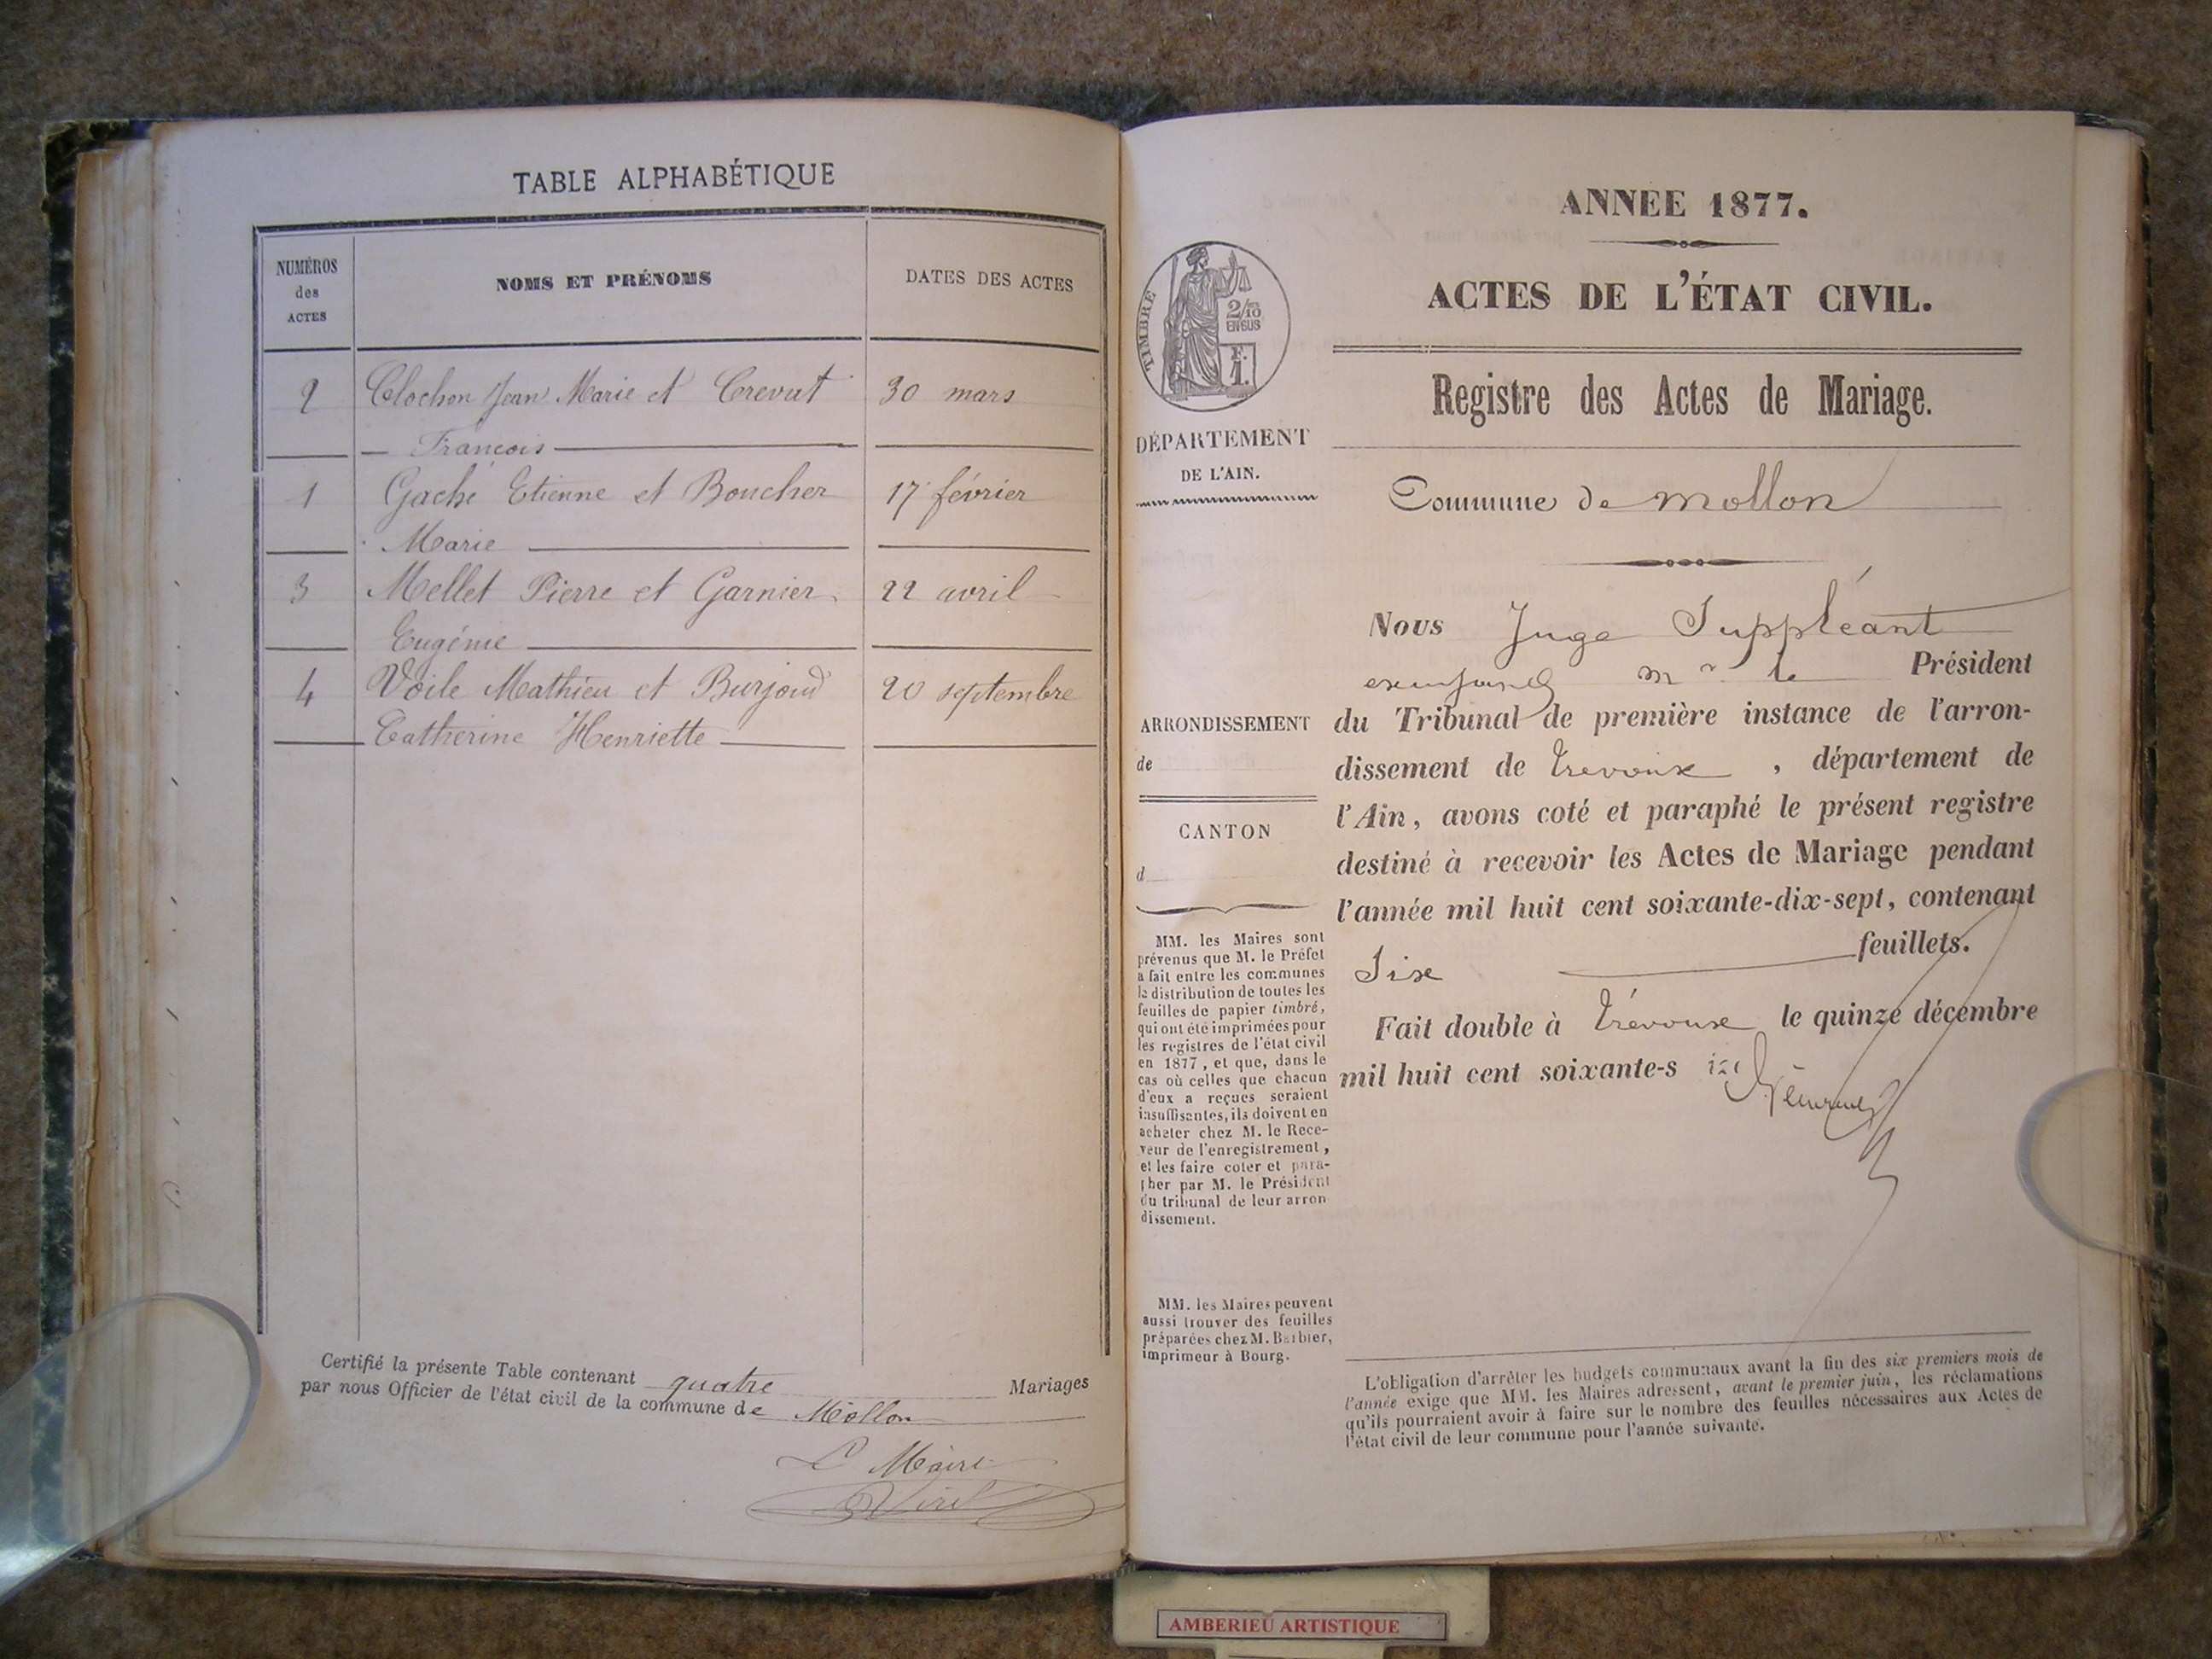 TABLE ALPHABÉTIQUE
NUMÉROS des ACTES
NOMS ET PRÉNOMS
DATES DES ACTES
2 Clochon Jean Marie et Crevat 30 mars
François
1 Gaché Etienne et Boucher 17 février
Marie
3 Mellet Pierre et Garnier 22 avril
Eugénie
4 Voile Mathieu et Burjoud 20 septembre
Catherine Henriette
Certifié la présente Table contenant quatre Mariages
par nous Officier de l'état civil de la commune de Mollon
L Maire
ANNEE 1877.
ACTES DE L'ÉTAT CIVIL.
Registre des Actes de Mariage.
Commune de Mollon
TIMBRE
2/10
EN SUS
F.
1.
DÉPARTEMENT
DE L'AIN.
ARRONDISSEMENT
de
CANTON
d
MM. les Maires sont
prévenus que M. le Préfet
a fait entre les communes
la distribution de toutes les
feuilles de papier timbré,
qui ont été imprimées pour
les registres de l'état civil
en 1877, et que, dans le
cas où celles que chacun
d'eux a reçues seraient
insuffisantes, ils doivent en
acheter chez M. le Rece-
veur de l'enregistrement,
et les faire coter et para-
pher par M. le Président
du tribunal de leur arron
dissement.
MM. les Maires peuvent
aussi trouver des feuilles
préparées chez M. Barbier,
imprimeur à Bourg.
Nous Juge Suppléant
Mr le Président
du Tribunal de première instance de l'arron-
dissement de Trevoux, département de
l'Ain, avons coté et paraphé le présent registre
destiné à recevoir les Actes de Mariage pendant
l'année mil huit cent soixante-dix-sept, contenant
Six feuillets.
Fait double à Trévoux le quinze décembre
mil huit cent soixante-s
L'obligation d'arrêter les budgets communaux avant la fin des six premiers mois de
l'année exige que MM. les Maires adressent, avant le premier juin, les réclamations
qu'ils pourraient avoir à faire sur le nombre des feuilles nécessaires aux Actes de
l'état civil de leur commune pour l'année suivante.
AMBERIEU ARTISTIQUE